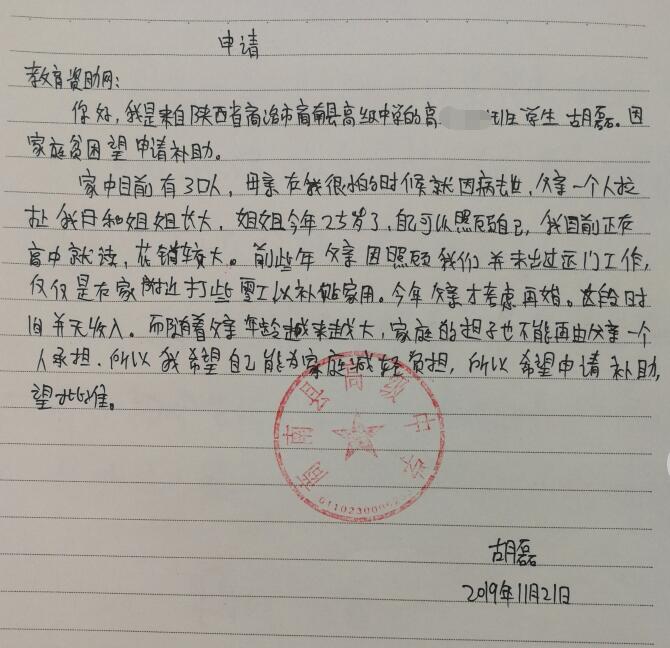 申请
教育资助网：
你好，我是来自陕西省商洛市商南县高级中学的高班学生胡磊。因
家庭贫困望申请补助。
家中目前有3口人，母亲在我很小的时候就因病去世，父亲一个人拉
扯我和姐姐长大，姐姐今年25岁了，自己可以照顾自己，我目前正在
高中就读，花销较大。前些年父亲因照顾我们并未出过远门工作，
仅仅是在家附近打些零工以补贴家用。今年父亲才考虑再婚。这段时
间并无收入。而随着父亲年龄越来越大，家庭的担子也不能再由父亲一个
人承担，所以我希望自己能为家庭减轻负担，所以希望申请补助，
望批准。
商南县高级中学
胡磊
2019年11月21日